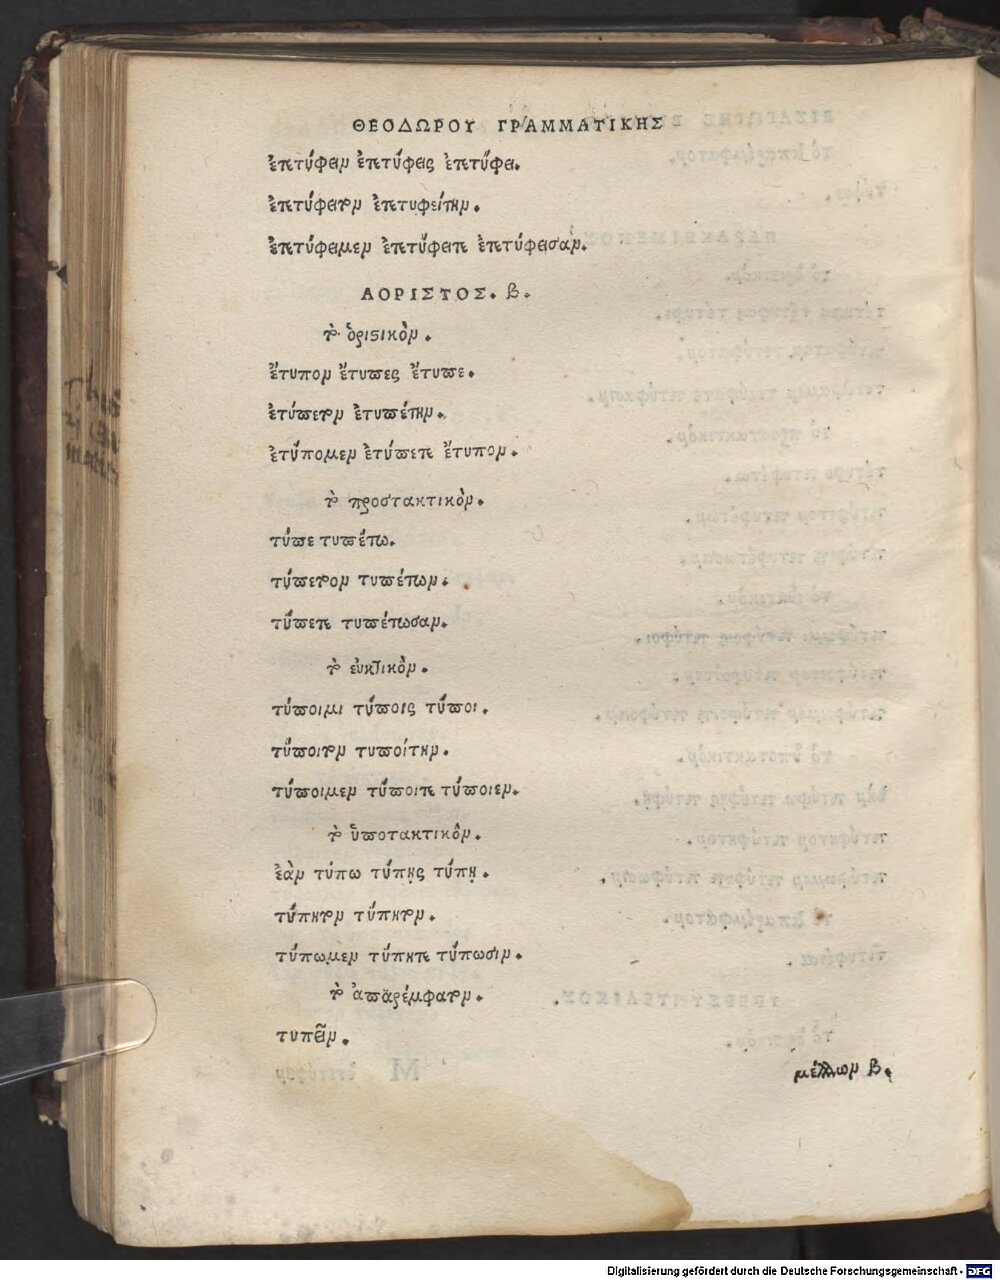 ΘΕΟΔΩΡΟΥ ΓΡΑΜΜΑΤΙΚΗΣ
ἐτετύφειν ἐτετύφεις ἐτετύφει.
ἐτετύφειτον ἐτετυφείτην.
ἐτετύφειμεν ἐτετύφειτε ἐτετύφεισαν.
ΑΟΡΙΣΤΟΣ. β.
τὸ ὁριστικὸν.
ἔτυπον ἔτυπες ἔτυπε.
ἐτύπετον ἐτυπέτην.
ἐτύπομεν ἐτύπετε ἔτυπον.
τὸ προστακτικὸν.
τύπε τυπέτω.
τύπετον τυπέτων.
τύπετε τυπέτωσαν.
τὸ εὐκτικὸν.
τύποιμι τύποις τύποι.
τύποιτον τυποίτην.
τύποιμεν τύποιτε τύποιεν.
τὸ ὑποτακτικὸν.
ἐὰν τύπω τύπῃς τύπῃ.
τύπητον τύπητον.
τύπωμεν τύπητε τύπωσιν.
τὸ ἀπαρέμφατον.
τυπεῖν.
μέλλων β.
Digitalisierung gefördert durch die Deutsche Forschungsgemeinschaft - DFG